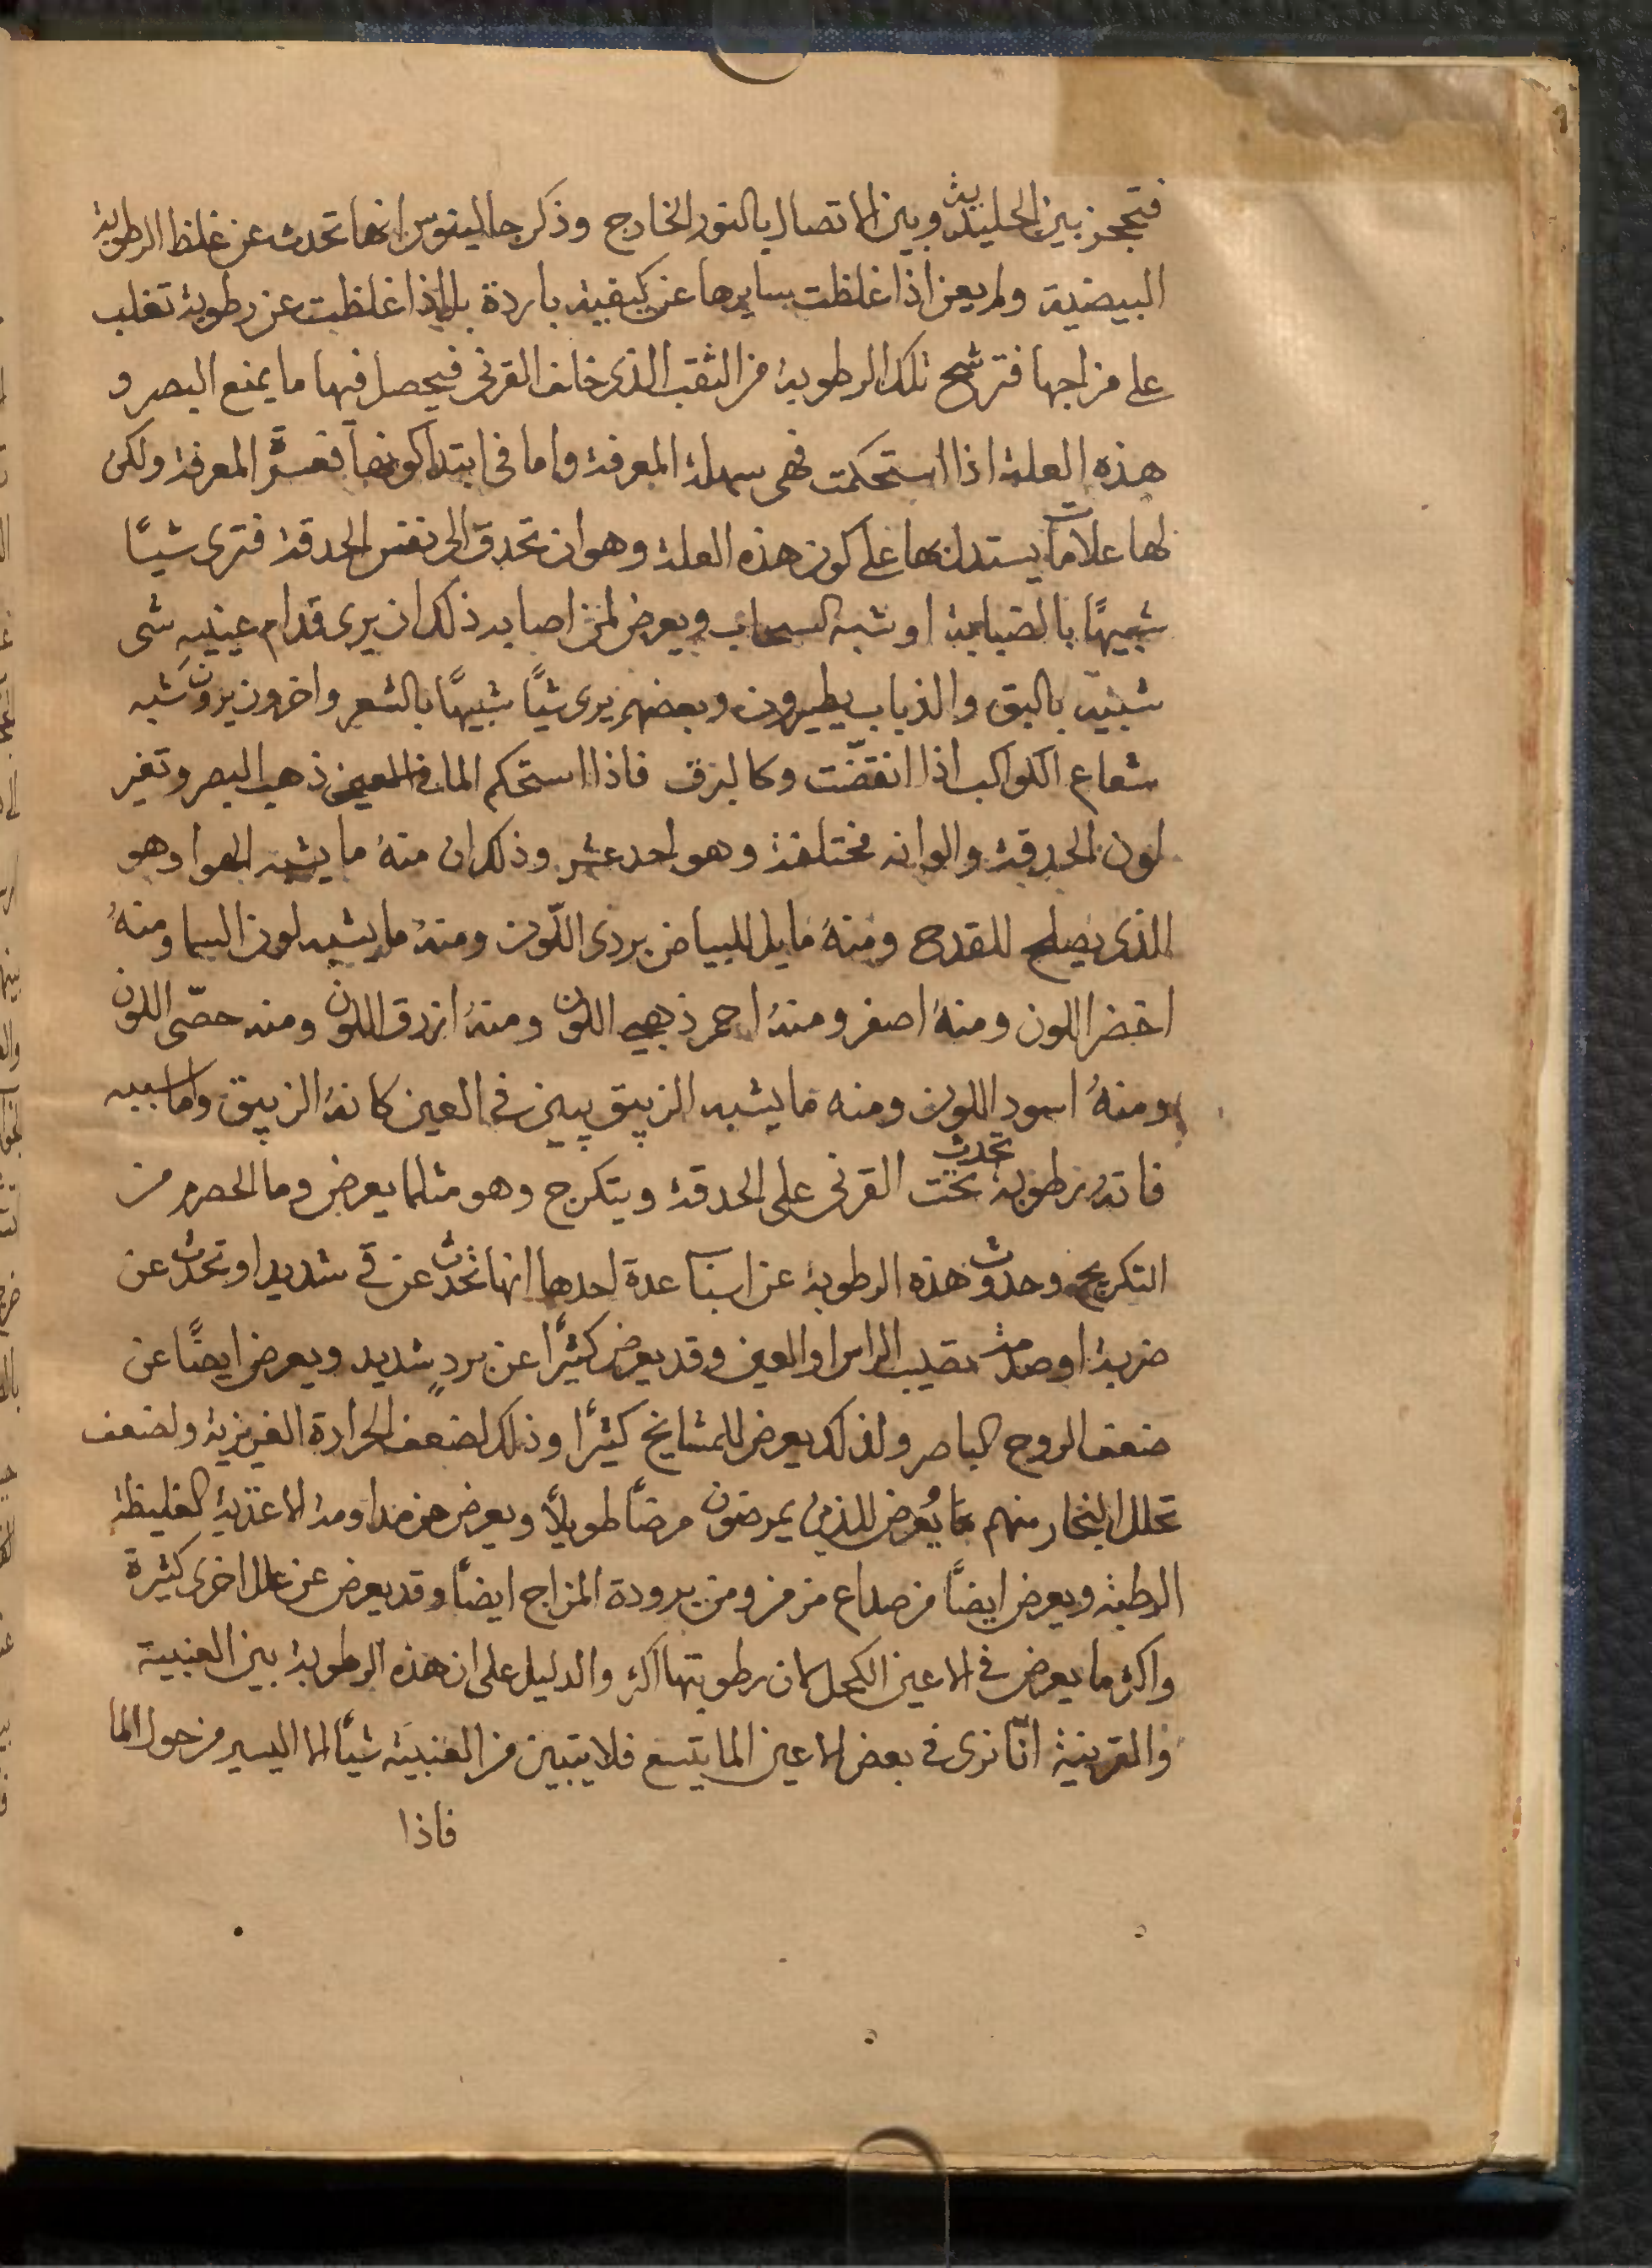 فتحجز بين الجليدية وبين الاتصال بالنور الخارج وذكر جالينوس انها تحدث عن غلظ الرطوبة
البيضية ولم يعن اذا غلظت بسايرها عن كيفية باردة بل اذا غلظت عن رطوبة تغلب
على مزاجها فترشح تلك الرطوبة من الثقب الذى خلف القرنى فيحصل فيها ما يمنع البصر و
هذه العلة اذا استحكمت فهى سهلة المعرفة واما فى ابتدا كونها فعسرة المعرفة ولكن
لها علامات يستدل بها على كون هذه العلة وهو ان تحدق الى نفس الحدقة فترى شيـًا
شبيهًا بالضبابة او شبه السحاب ويعرض لمن اصابه ذلك ان يرى قدام عينيه شى
شبيه بالبق والذباب يطيرون وبعضهم يرى شيًا شبيهًا بالشعر واخرون يرون شبه
شعاع الكواكب اذا انقضّت وكالبرق فاذا استحكم الما فى العين ذهب البصر وتغير
لون الحدقة والوانه مختلفة وهو احد عشر وذلك ان منهُ ما يشبه الهوا وهو
الذى يصلح للقدح ومنهُ مايل للبياض بردى اللّون ومنهُ ما يشبه لون السما ومنهُ
اخضر اللون ومنهُ اصفر ومنهُ احمر ذهبى اللون ومنهُ ازرق اللون ومنه جصّى اللون
ومنهُ اسود اللون ومنه ما يشبه الزيبق يبين فى العين كانهُ الزيبق واما سببه
فانه رطوبة تحدث تحت القرنى على الحدقة ويتكرج وهو مثلما يعرض وما الحصرم من
التكريج وحدوث هذه الرطوبة عن اسباب عدة احدها انها تحدث عن قى شديد او تحدث عن
ضربة او صدمة تصيب الراس او العين وقد يعرض كثيرًا عن بردٍ شديد ويعرض ايضًا عن
ضعف الروح الباصر ولذلك يعرض للمشايخ كثيرًا وذلك لضعف الحرارة الغريزية ولضعف
تحلل البخار منهم ما يُعرض للذين يمرضون مرضًا طويلاً ويعرض من مداومة الاغذية الغليظة
الرطبة ويعرض ايضًا من صداع مزمن ومن برودة المزاج ايضًا وقد يعرض عن علل اخرى كثيرة
واكثر ما يعرض فى الاعين الكحل لان رطوبتها اكثر والدليل على ان هذه الرطوبة بين العنبية
والقرنية انّا نرى فى بعض الاعين الما يتسع فلا يتبين من العنبية شيًا الا اليسير من حول الما
فاذا